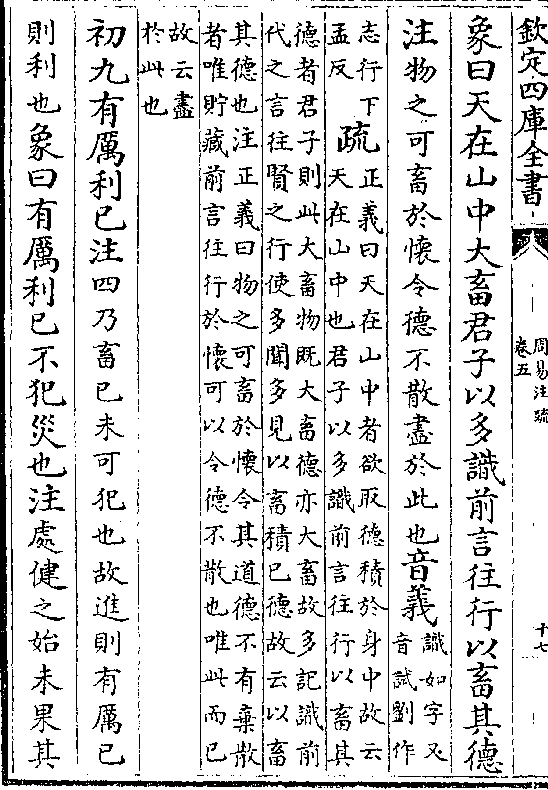 欽定四庫全書
周易注疏
卷五
十七
象曰天在山中大畜君子以多識前言往行以畜其德
注物之可畜於懷令德不散盡於此也音義識如字又
音試劉作
志行下
孟反疏正義曰天在山中者欲取德積於身中故云
天在山中也君子以多識前言往行以畜其
德者君子則此大畜物既大畜德亦大畜故多記識前
代之言往賢之行使多聞多見以畜積已德故云以畜
其德也注正義曰物之可畜於懷令其道德不有棄散
者唯貯藏前言往行於懷可以令德不散也唯此而已
故云盡
於此也
初九有厲利已注四乃畜已未可犯也故進則有厲已
則利也象曰有厲利已不犯災也注處健之始未果其